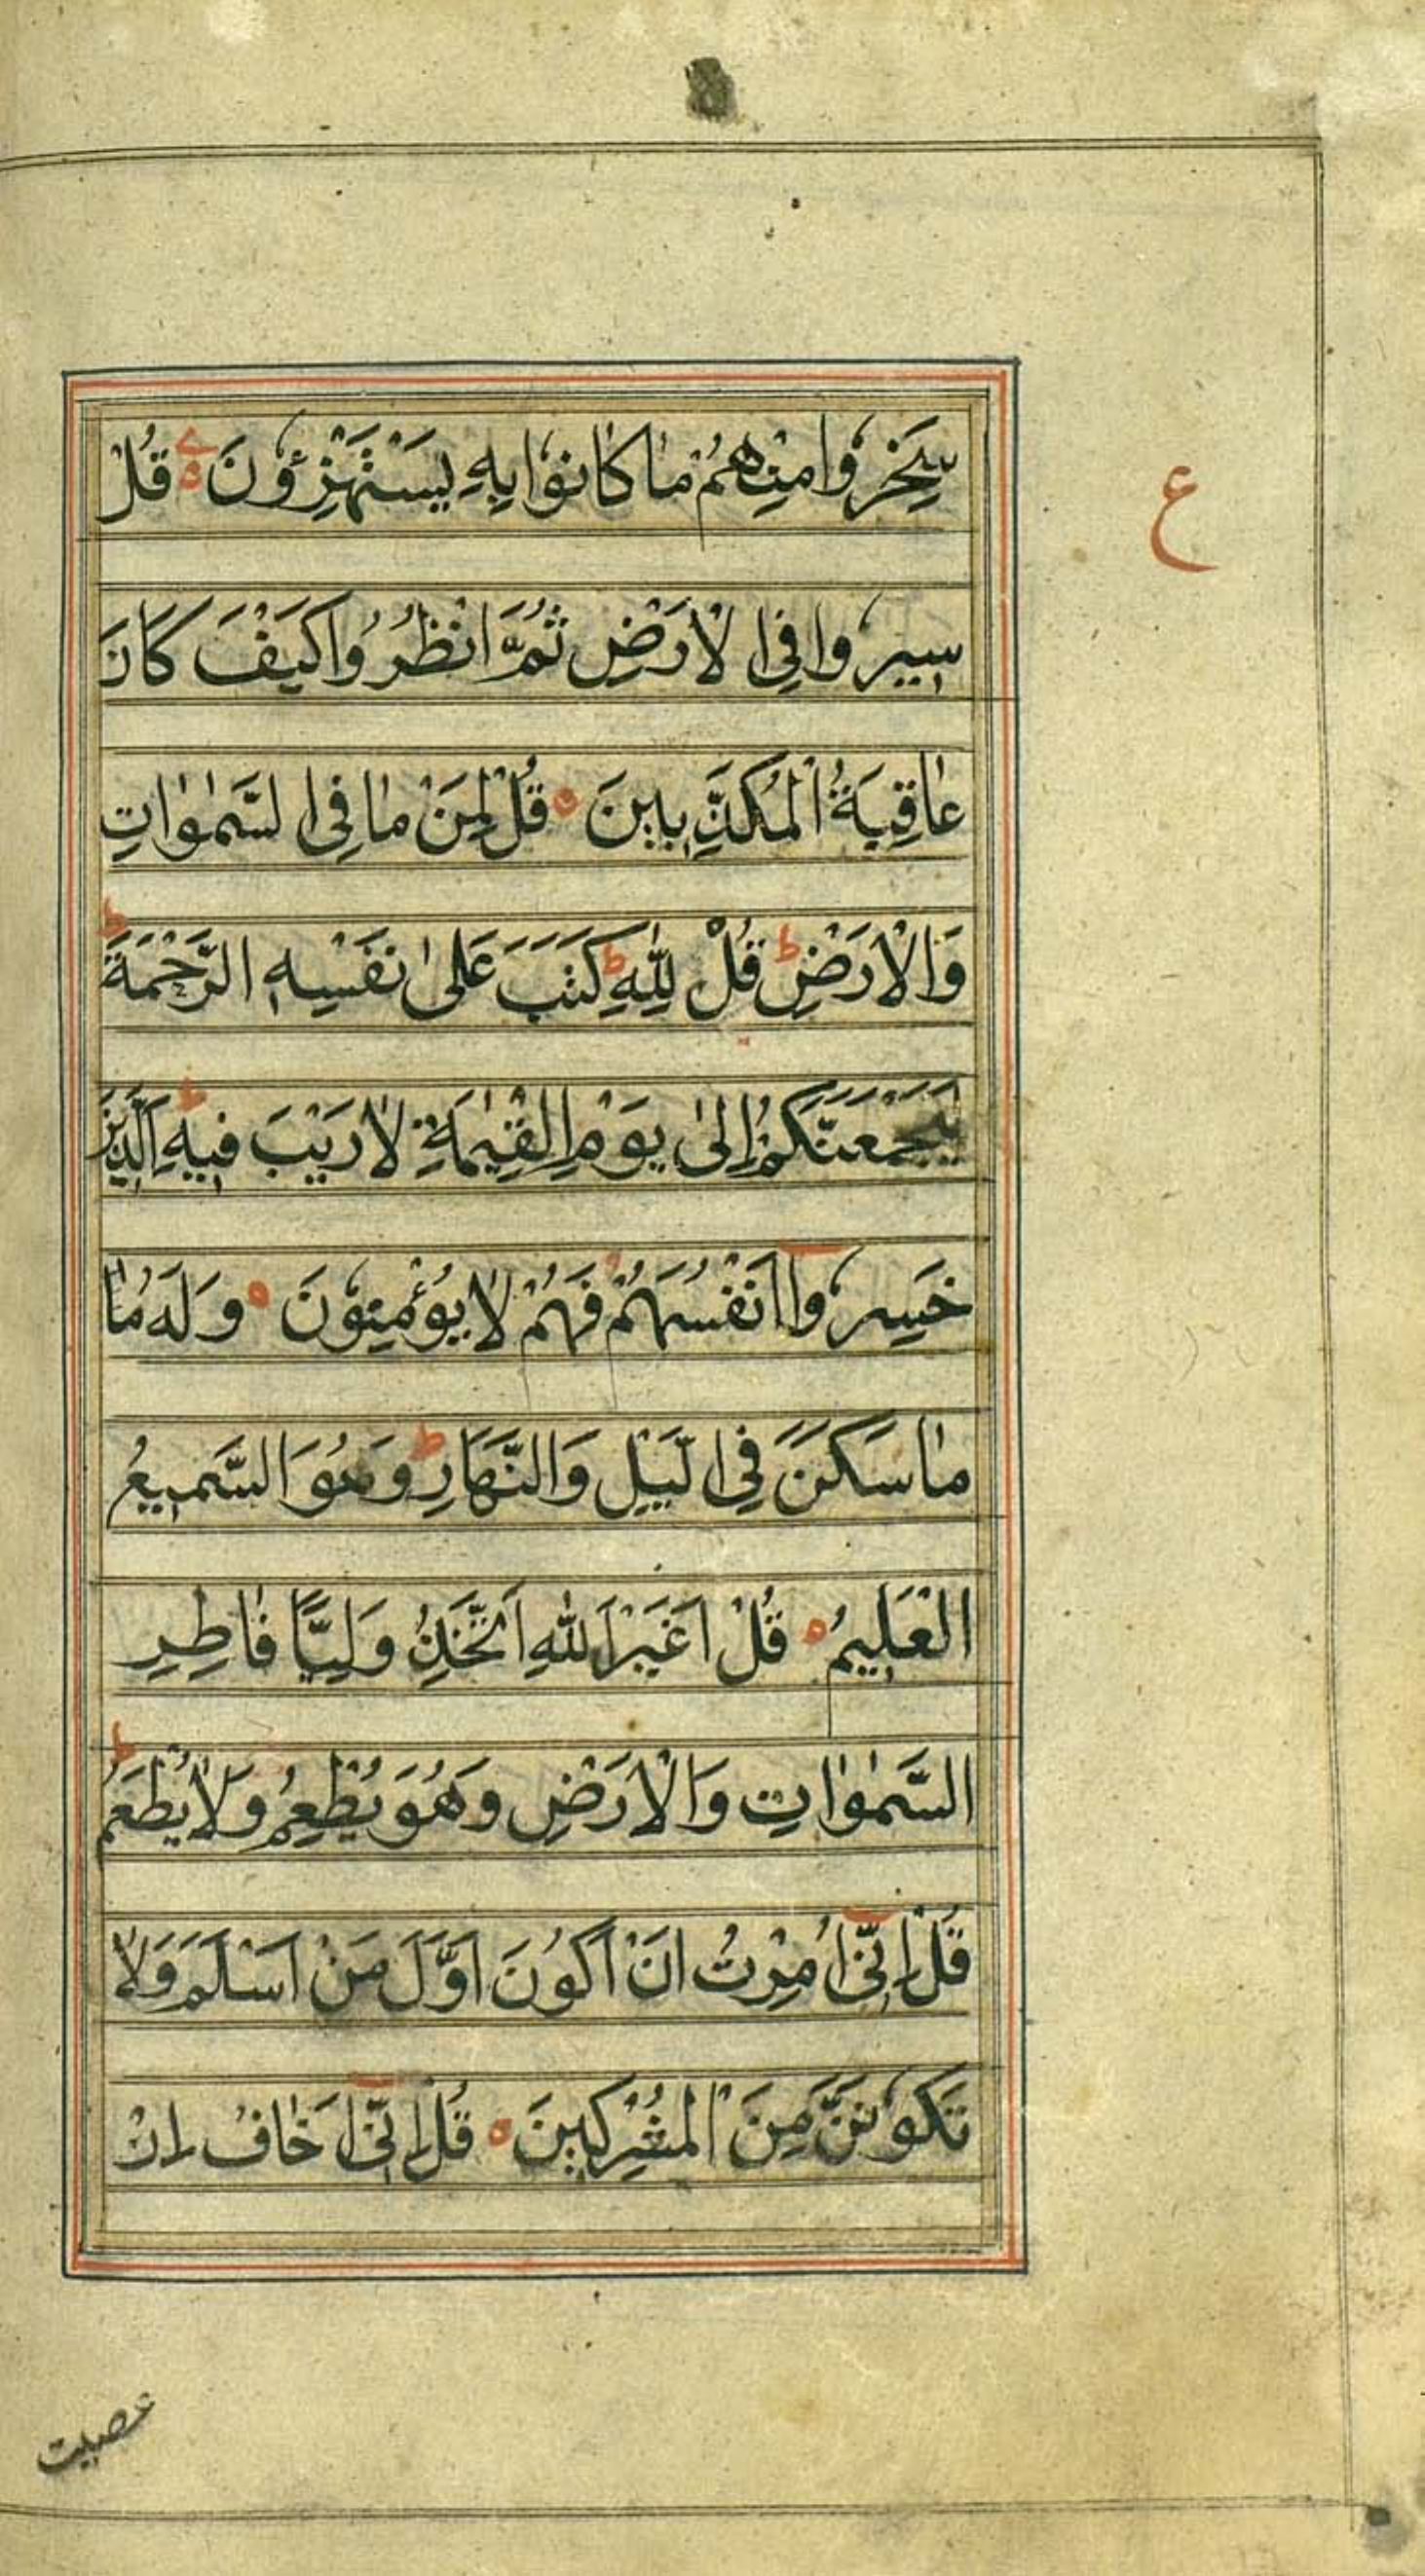 سَخِرُوا مِنْهُمْ مَا كَانُوا بِهِ يَسْتَهْزِؤُنَ قُلْ
ع
سِيرُوا فِي الْاَرْضِ ثُمَّ انْظُرُوا كَيْفَ كَانَ
عَاقِبَةُ الْمُكَذِّبِينَ قُلْ لِمَنْ مَا فِي السَّمٰوَاتِ
وَالْاَرْضِ ط قُلْ لِلّٰهِ ط كَتَبَ عَلٰى نَفْسِهِ الرَّحْمَةَ ط
لَيَجْمَعَنَّكُمْ اِلٰى يَوْمِ الْقِيٰمَةِ لَا رَيْبَ فِيهِ ط اَلَّذِينَ
خَسِرُوا اَنْفُسَهُمْ فَهُمْ لَا يُؤْمِنُونَ وَلَهُ مَا
مَا سَكَنَ فِي الَّيْلِ وَالنَّهَارِ ط وَهُوَ السَّمِيعُ
الْعَلِيمُ قُلْ اَغَيْرَ اللّٰهِ اَتَّخِذُ وَلِيًّا فَاطِرِ
السَّمٰوَاتِ وَالْاَرْضِ وَهُوَ يُطْعِمُ وَلَا يُطْعَمُ ط
قُلْ اِنِّي اُمِرْتُ اَنْ اَكُونَ اَوَّلَ مَنْ اَسْلَمَ وَلَا
تَكُونَنَّ مِنَ الْمُشْرِكِينَ قُلْ اِنِّي اَخَافُ اِنْ
عصیت